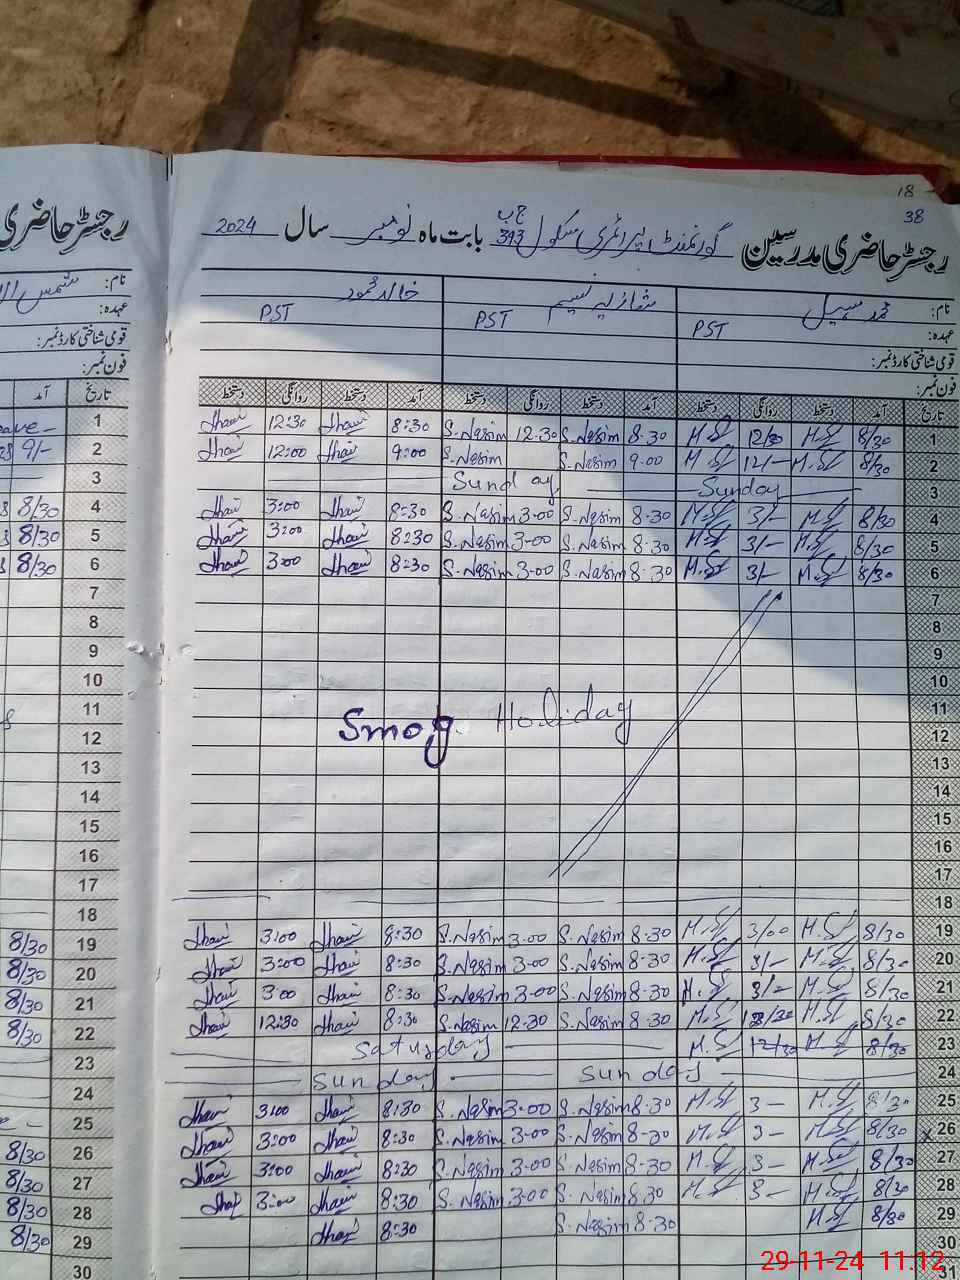 18
38
رجسٹر حاضری مدرسین گورنمنٹ پرائمری سکول 393 ج ب بابت ماہ نومبر سال 2024
رجسٹر حاضری
نام: محمد سہیل شازیہ نسیم خالد محمود
عہدہ: PST PST PST
قومی شناختی کارڈ نمبر:
فون نمبر:
نام: شمس
عہدہ:
قومی شناختی کارڈ نمبر:
فون نمبر:
تاریخ آمد دستخط روانگی دستخط آمد دستخط روانگی دستخط آمد دستخط روانگی دستخط تاریخ آمد
12:30 8:30 S. Nasim 12.30 S. Nasim 8.30 M.S 12/30 M.S 8/30 1
12:00 9:00 S. Nasim S. Nasim 9.00 M.S 12/- M.S 8/30 2
Sunday Sunday 3
3:00 8:30 S. Nasim 3.00 S. Nasim 8.30 M.S 3/- M.S 8/30 4
3:00 8:30 S. Nasim 3-00 S. Nasim 8.30 M.S 3/- M.S 8/30 5
3:00 8:30 S. Nasim 3-00 S. Nasim 8-30 M.S 3/- M.S 8/30 6
7
8
9
10
11
Smog Holiday
12
13
14
15
16
17
18
3:00 8:30 S. Nasim 3.00 S. Nasim 8.30 M.S 3/00 M.S 8/30 19
3:00 8:30 S. Nasim 3-00 S. Nasim 8.30 M.S 3/- M.S 8/30 20
3:00 8:30 S. Nasim 3-00 S. Nasim 8.30 M.S 3/- M.S 8/30 21
12:30 8:30 S. Nasim 12.30 S. Nasim 8.30 M.S M.S 8/30 22
Saturday M.S 12/30 M.S 8/30 23
Sunday Sunday 24
3:00 8:30 S. Nasim 3-00 S. Nasim 8-30 M.S 3- M.S 8/30 25
3:00 8:30 S. Nasim 3-00 S. Nasim 8-30 M.S 3- M.S 8/30 26 x
3:00 8:30 S. Nasim 3-00 S. Nasim 8-30 M.S 3- M.S 8/30 27
3:00 8:30 S. Nasim 3-00 S. Nasim 8.30 M.S 3- M.S 8/30 28
8:30 S. Nasim 8-30 M.S 8/30 29
30
31
1
9/- 2
3
8/30 4
8/30 5
8/30 6
7
8
9
10
11
12
13
14
15
16
17
18
8/30 19
8/30 20
8/30 21
8/30 22
23
24
25
8/30 26
8/30 27
8/30 28
8/30 29
30
29-11-24 11:12